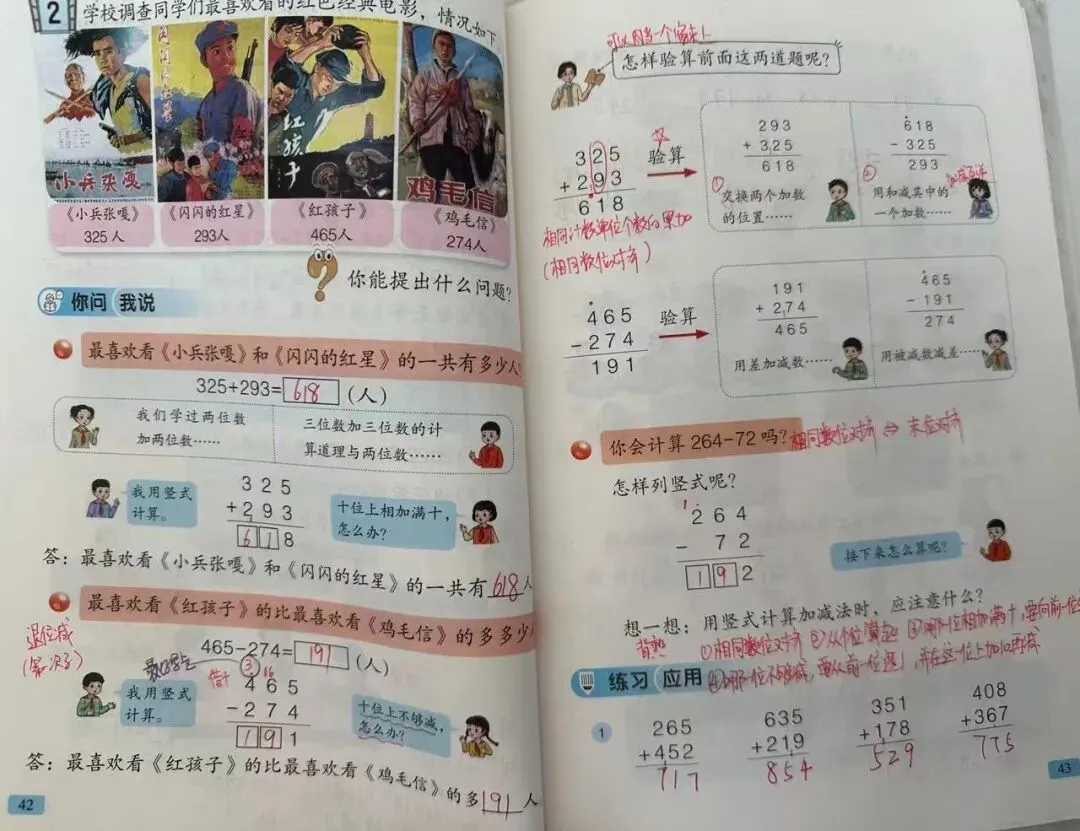 2 学校调查同学们最喜欢看的红色经典电影，情况如下
小兵张嘎
闪闪的红星
红孩子
鸡毛信
《小兵张嘎》
325人
《闪闪的红星》
293人
《红孩子》
465人
《鸡毛信》
274人
你能提出什么问题?
你问 我说
最喜欢看《小兵张嘎》和《闪闪的红星》的一共有多少人?
325+293=618 (人)
我们学过两位数
加两位数……
三位数加三位数的计
算道理与两位数……
我用竖式
计算。
325
+293
618
十位上相加满十，
怎么办?
答：最喜欢看《小兵张嘎》和《闪闪的红星》的一共有618人
最喜欢看《红孩子》的比最喜欢看《鸡毛信》的多多少人
退位减
465-274=191 (人)
借十
③ 16
我用竖式
计算。
465
-274
191
十位上不够减，
怎么办?
答：最喜欢看《红孩子》的比最喜欢看《鸡毛信》的多191人
42
怎样验算前面这两道题呢?
325
+293
618
验算
293
+325
618
①
交换两个加数
的位置……
618
-325
293
②
用和减其中的
一个加数……
相同计数单位个数的累加
(相同数位对齐)
465
-274
191
验算
191
+274
465
用差加减数……
465
-191
274
用被减数减差……
你会计算264-72吗? 相同数位对齐 ⇔ 末位对齐
怎样列竖式呢?
1
264
- 72
192
接下来怎么算呢?
想一想：用竖式计算加减法时，应注意什么?
背熟 ①相同数位对齐 ②从个位算起 ③哪一位相加满十，要向前一位
练习 应用 ④哪一位不够减，要从前一位退1，并在这一位上加10再减
1
265
+452
717
635
+219
854
351
+178
529
408
+367
775
43